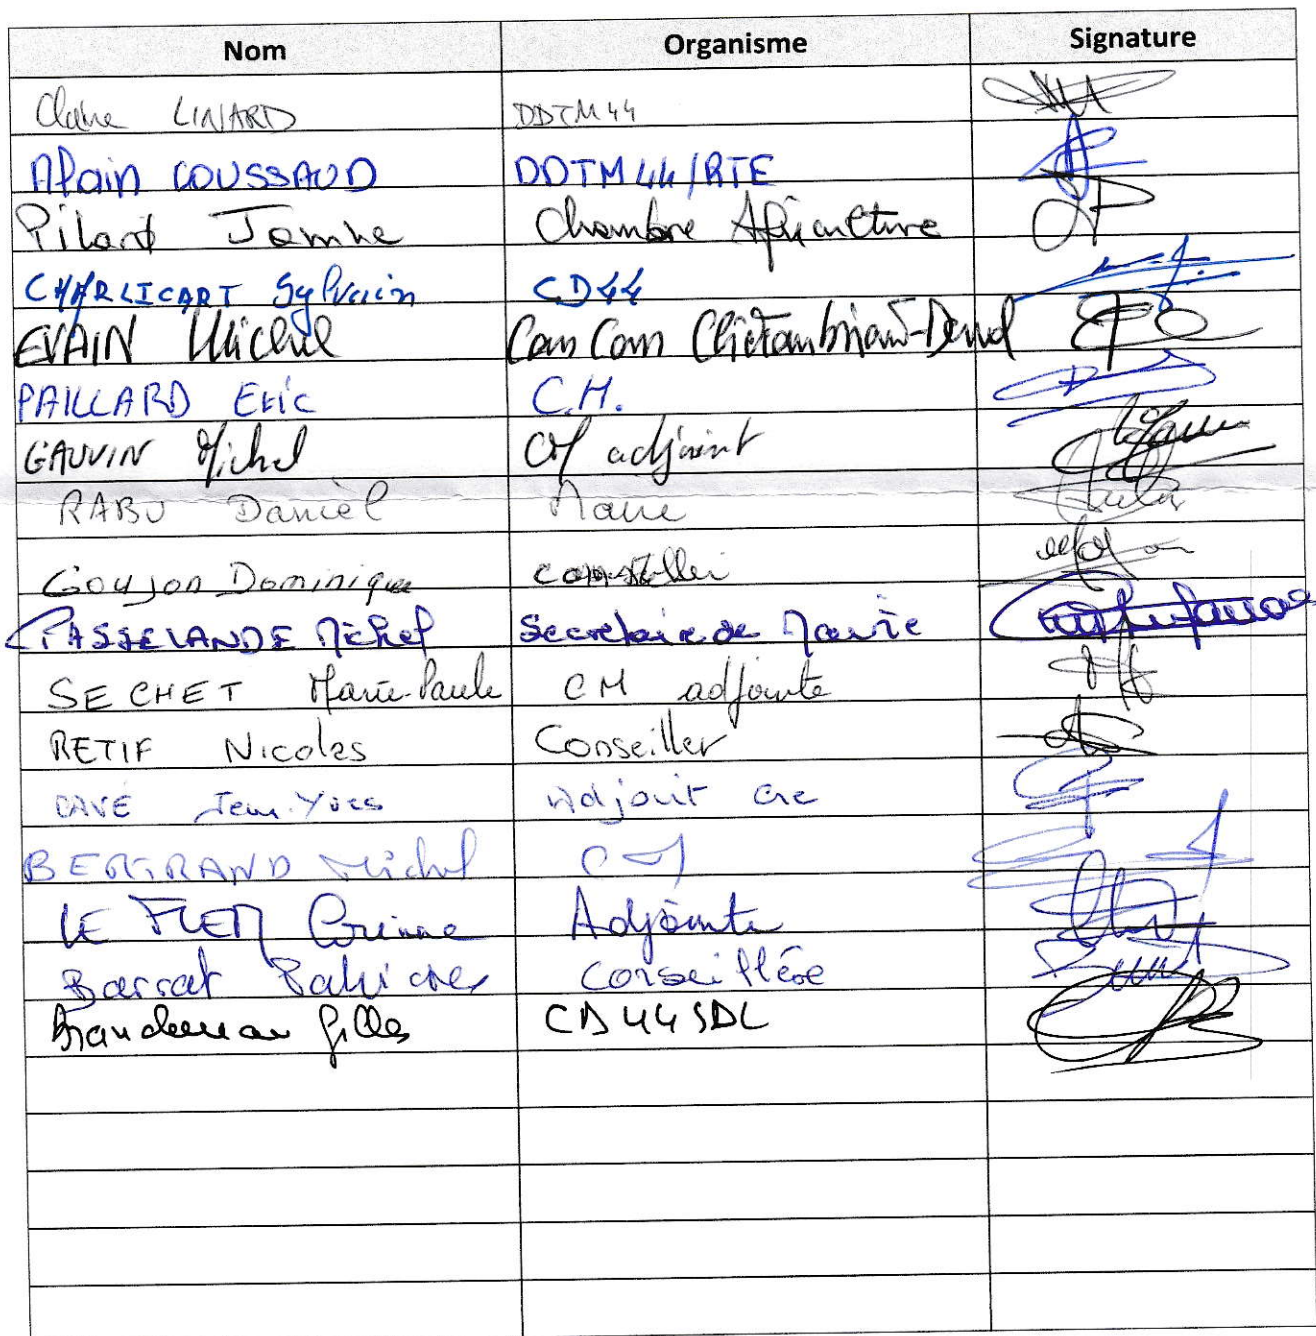 Nom Organisme Signature
Claire LINARD DDTM44
Alain COUSSAUD DDTM44/RTE
Pilard Chambre Agriculture
CHARLICART Sylvain CD44
EVAIN Michel Com Com Châteaubriant-Derval
PAILLARD Eric C.M.
GAUVIN Michel CM adjoint
RABU Daniel Maire
Goujon Dominique conseiller
PASSELANDE Michel Secretaire de Mairie
SECHET Marie-Paule CM adjointe
RETIF Nicolas Conseiller
DAVÉ Jean-Yves Adjoint
BERTRAND Michel CM
LE FLEM Corinne Adjointe
Barrat Conseillère
Gilles CD44 SDL